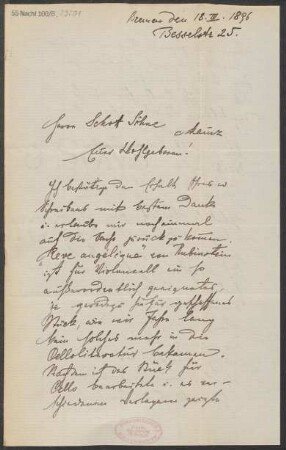 55 Nachl 100/B
Bremen den 18. III. 1896
Besselstr 25.
Herrn Schott Söhne
Mainz
Euer Wohlgeboren!
Ich bestätige den Erhalt Ihres
Schreibens mit bestem Danke
u. erlaube mir noch einmal
auf die Sache zurück zu kommen.
"Rêve angélique" von Rubinstein
ist für Violoncell ein so
außerordentlich geeignetes,
ja geradezu hiefür geschaffenes
Stück, wie wir schon lang
kein solches mehr in der
Celloliteratur bekamen.
Nachdem ich das Stück für
Cello bearbeitete u. es
verschiedenen Verlegern zeigte